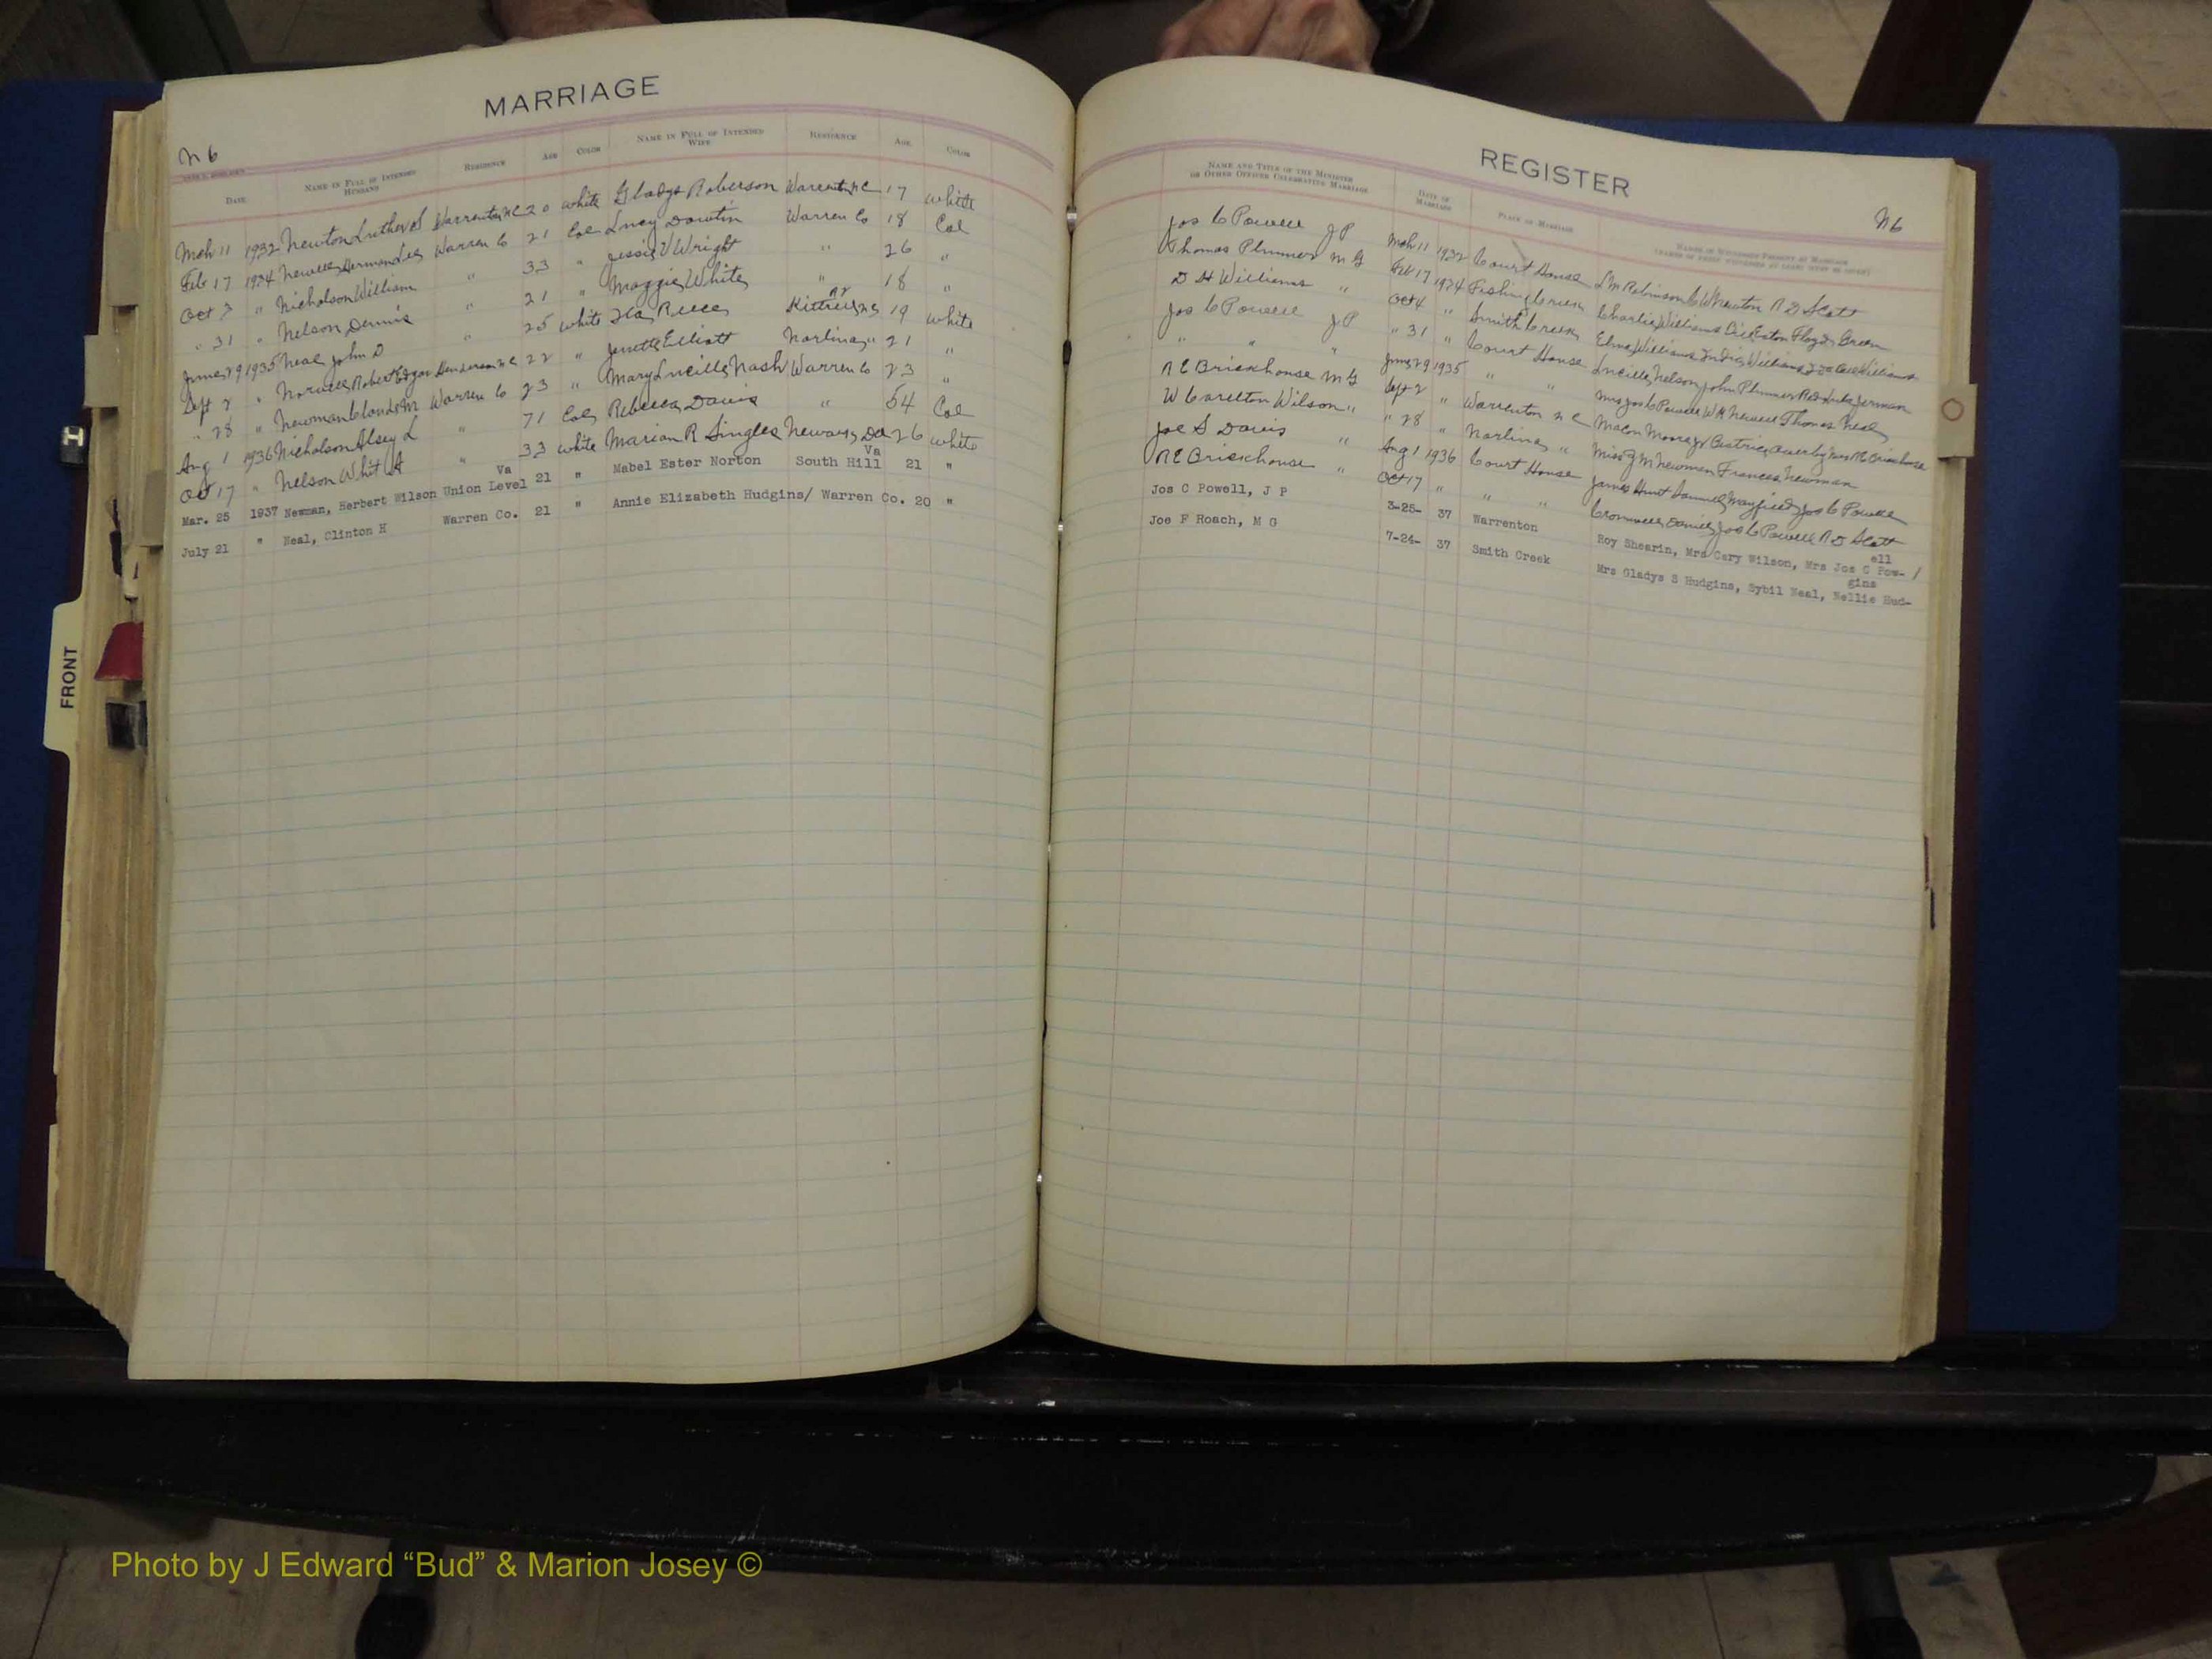 MARRIAGE
N6
DATE NAME IN FULL OF INTENDED HUSBAND RESIDENCE AGE COLOR NAME IN FULL OF INTENDED WIFE RESIDENCE AGE COLOR
Mch 11 1932 Newton Luther S Warrenton NC 20 white Gladys Roberson Warrenton NC 17 white
Feb 17 1934 Newell Herman Lee Warren Co 21 Col Lucy Dowtin Warren Co 18 Col
Oct 3 " Nicholson William " 33 " Jessie V Wright " 26 "
" 31 " Nelson Dennis " 21 " Maggie White " 18 "
June 29 1935 Neal John D " 25 white Reece Kittrell NC 19 white
Sept 2 " Norwell Robert Edgar Henderson NC 22 " Elliott Norlina " 21 "
" 28 " Newman Claude M Warren Co 23 " Mary Lucille Nash Warren Co 23 "
Aug 1 1936 Nicholson Alsey L " 71 Col Rebecca Davis " 54 Col
Oct 17 " Nelson Whit A " 33 white Marian R Singles 26 white
Mar. 25 1937 Newman, Herbert Wilson Union Level Va 21 " Mabel Ester Norton South Hill Va 21 "
July 21 " Neal, Clinton H Warren Co. 21 " Annie Elizabeth Hudgins/ Warren Co. 20 "
FRONT
REGISTER
N6
NAME AND TITLE OF THE MINISTER OR OTHER OFFICER CELEBRATING MARRIAGE DATE OF MARRIAGE PLACE OF MARRIAGE NAMES OF WITNESSES PRESENT AT MARRIAGE
Jos C Powell J P Mch 11 1932 Court House L M Robinson C W Newton R D Scott
Thomas Plummer M G Feb 17 1934 Fishing Creek Charlie Williams Floyd Green
D H Williams " Oct 4 " Smith Creek Elma Williams Williams Williams
Jos C Powell J P " 31 " Court House Lucille Nelson John Plummer
" " " June 29 1935 " " Mrs Jos C Powell W H Newell Thomas Neal
R E Brickhouse M G Sept 2 " Warrenton N C Macon Moore Jr Mrs R E Brickhouse
W Carelton Wilson " " 28 " Norlina " Miss J M Newman Frances Newman
Joe S Davis " Aug 1 1936 Court House James Hunt Mayfield Jos C Powell
R E Brickhouse " Oct 17 " " " Cromwell Daniel Jos C Powell R D Scott
Jos C Powell, J P 3-25- 37 Warrenton Roy Shearin, Mrs Cary Wilson, Mrs Jos C Pow-ell
Joe F Roach, M G 7-24- 37 Smith Creek Mrs Gladys S Hudgins, Sybil Neal, Nellie Hud-gins
Photo by J Edward “Bud” & Marion Josey ©